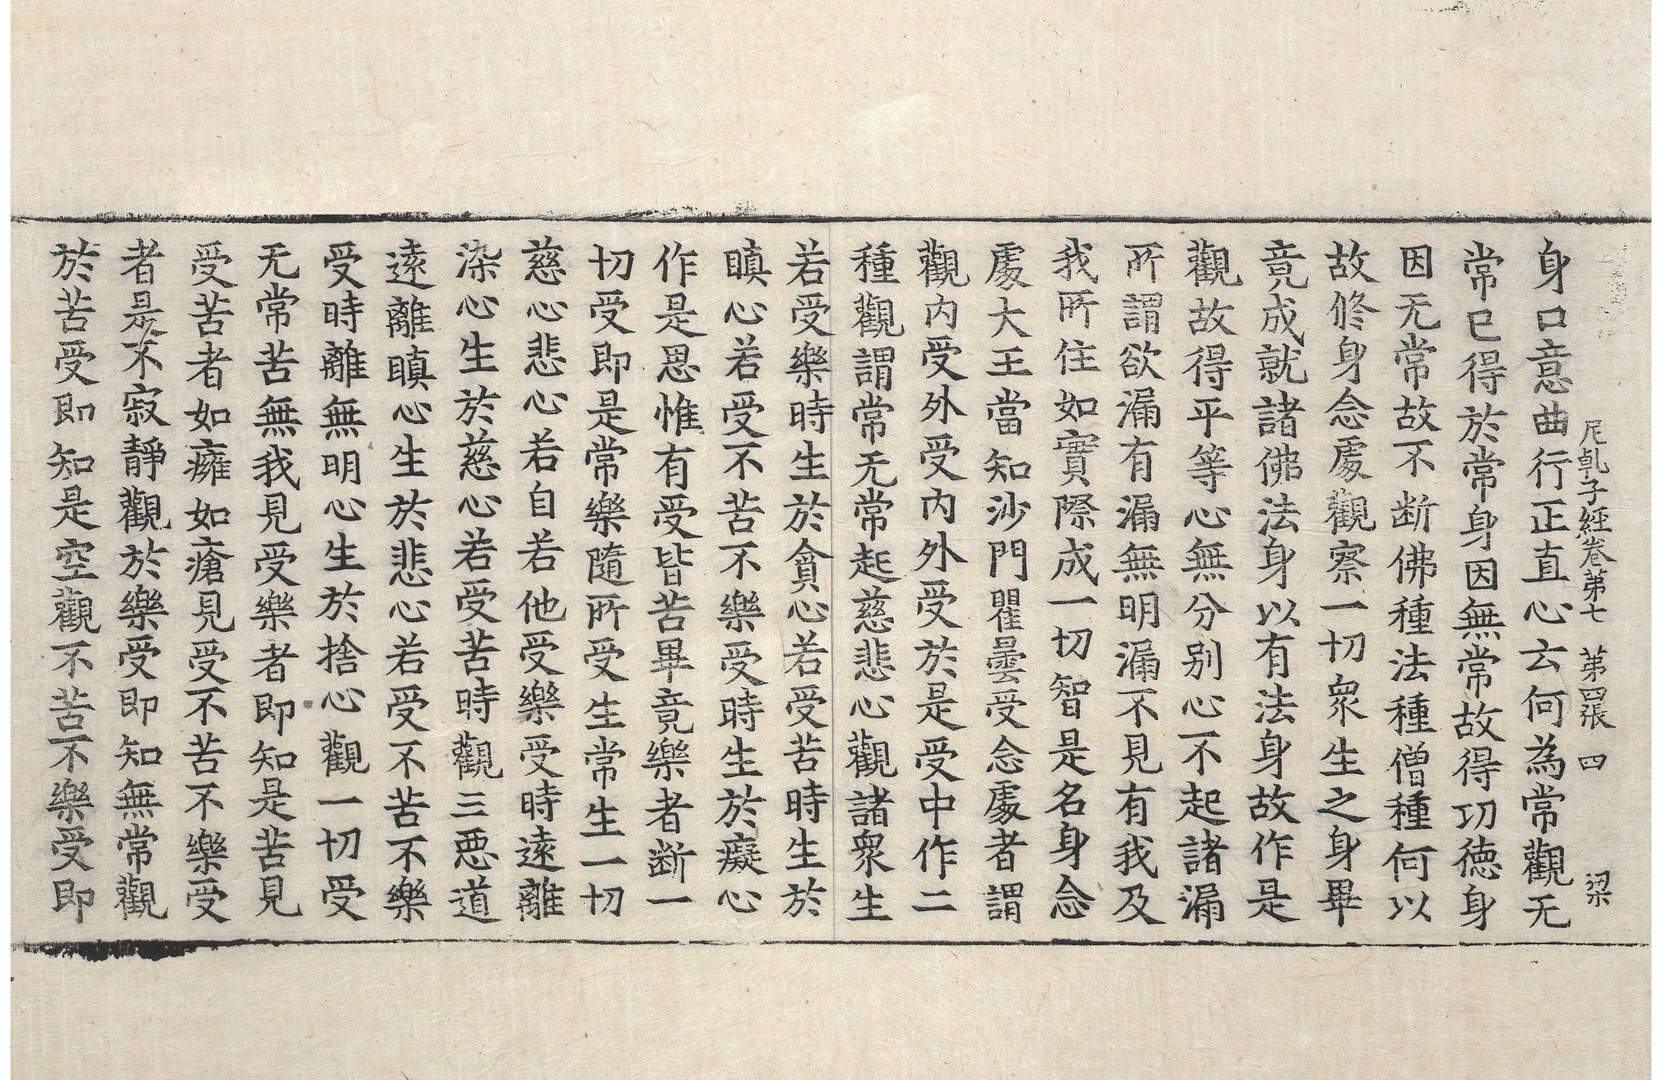 尼乹子經卷第七　第四張　四　梁
身口意曲行正直心云何為常觀无
常已得於常身因無常故得功徳身
因无常故不断佛種法種僧種何以
故修身念處觀察一切衆生之身畢
竟成就諸佛法身以有法身故作是
觀故得平等心無分别心不起諸漏
所謂欲漏有漏無明漏不見有我及
我所住如實際成一切智是名身念
處大王當知沙門瞿曇受念處者謂
觀内受外受内外受於是受中作二
種觀謂常无常起慈悲心觀諸衆生
若受樂時生於貪心若受苦時生於
瞋心若受不苦不樂受時生於癡心
作是思惟有受皆苦畢竟樂者断一
切受即是常樂隨所受生常生一切
慈心悲心若自若他受樂受時遠離
染心生於慈心若受苦時觀三惡道
遠離瞋心生於悲心若受不苦不樂
受時離無明心生於捨心觀一切受
无常苦無我見受樂者即知是苦見
受苦者如癰如瘡見受不苦不樂受
者是不寂靜觀於樂受即知無常觀
於苦受即知是空觀不苦不樂受即